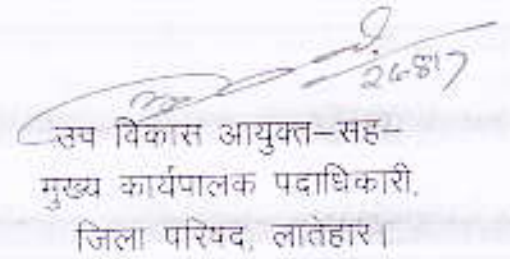 26817
उप विकास आयुक्त–सह–
मुख्य कार्यपालक पदाधिकारी,
जिला परिषद, लातेहार।